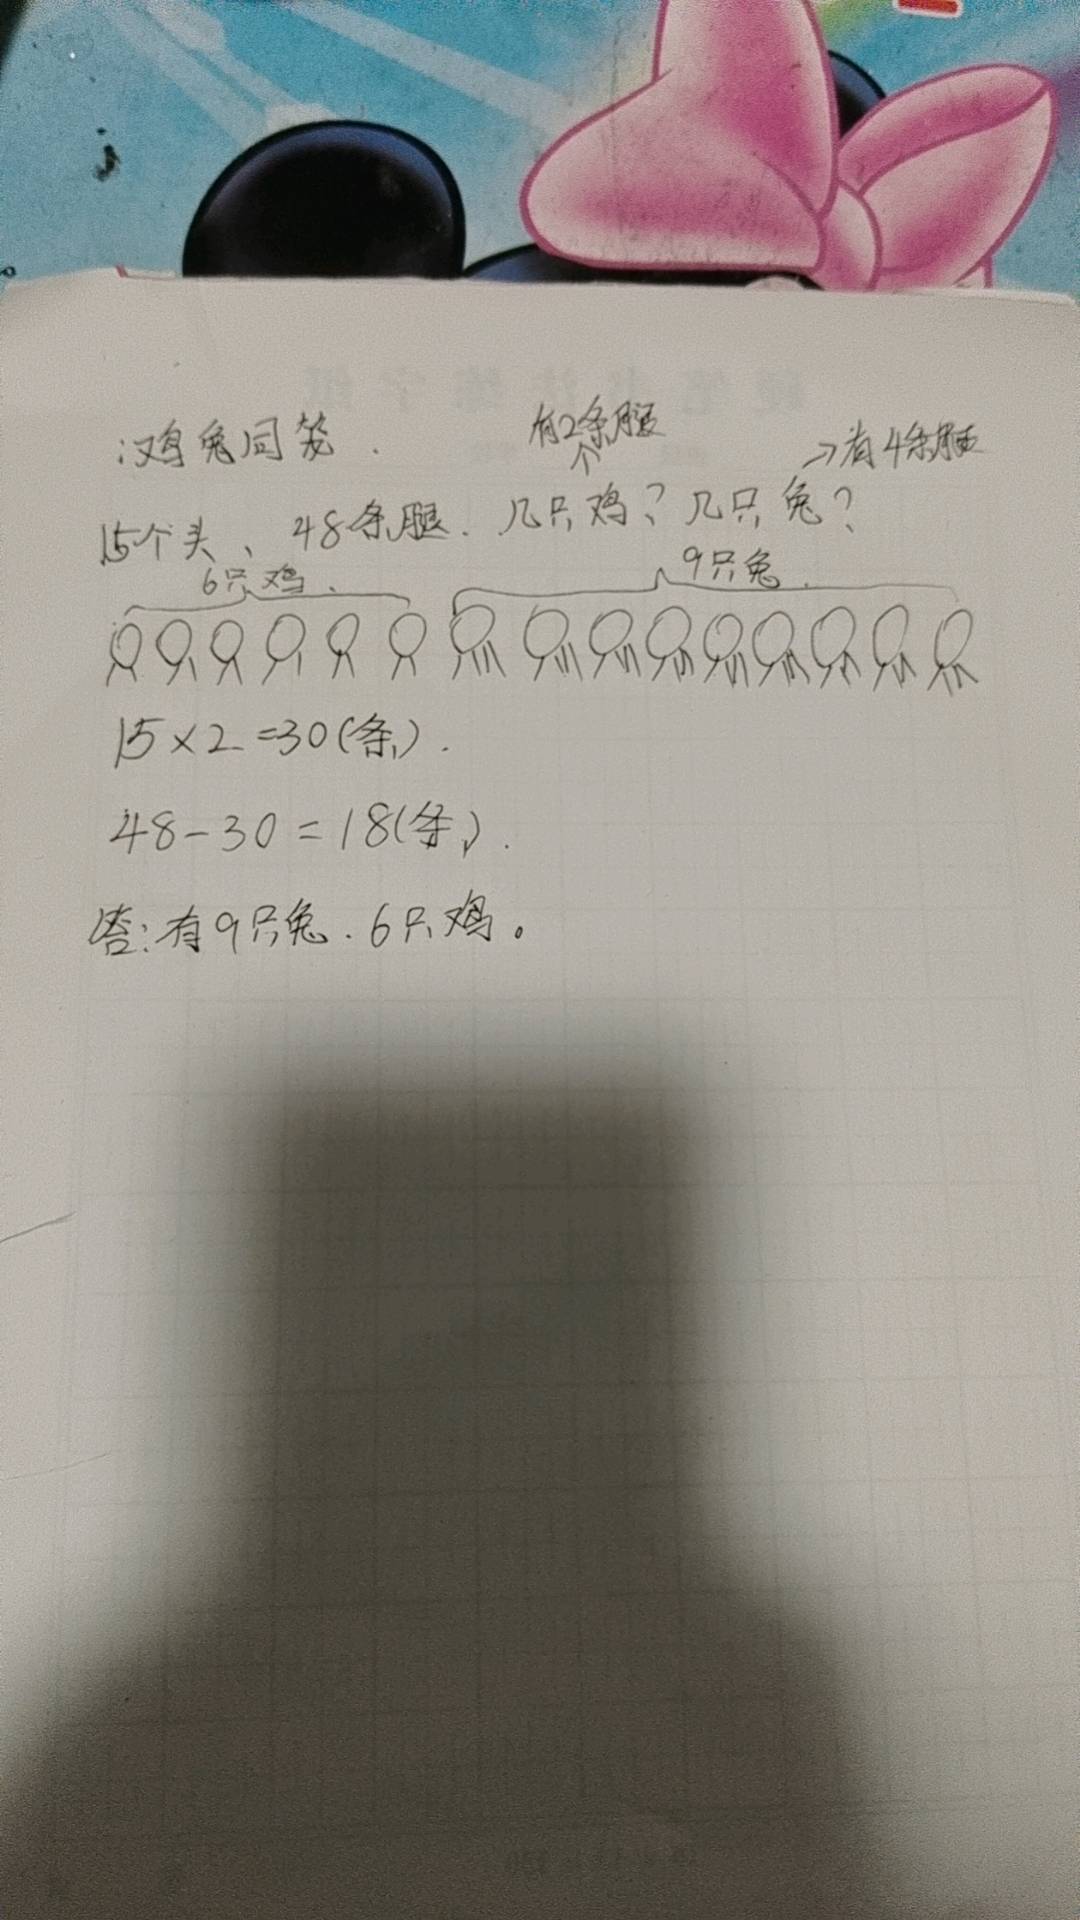 鸡兔同笼.
有2条腿
→有4条腿
15个头、48条腿.几只鸡?几只兔?
6只鸡.
9只兔.
15×2=30(条).
48-30=18(条).
答:有9只兔.6只鸡。